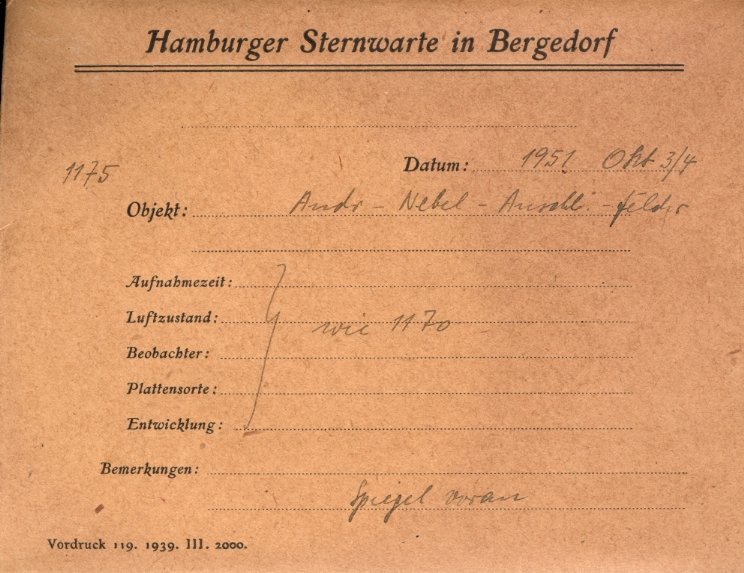 Hamburger Sternwarte in Bergedorf
1175
Datum: 1951 Okt 3/4
Objekt: Andr - Nebel - Anschl. - felder
Aufnahmezeit:
Luftzustand:
wie 1170
Beobachter:
Plattensorte:
Entwicklung:
Bemerkungen:
Spiegel voran
Vordruck 119. 1939. III. 2000.